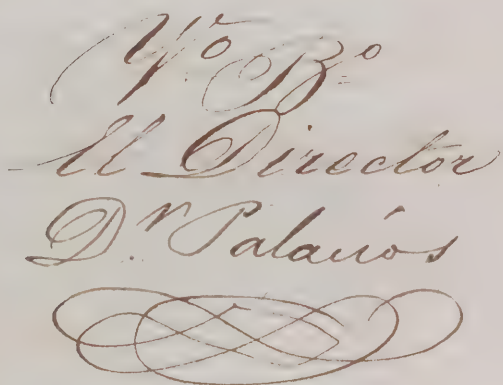 Vº Bº
El Director
D.r Palacios